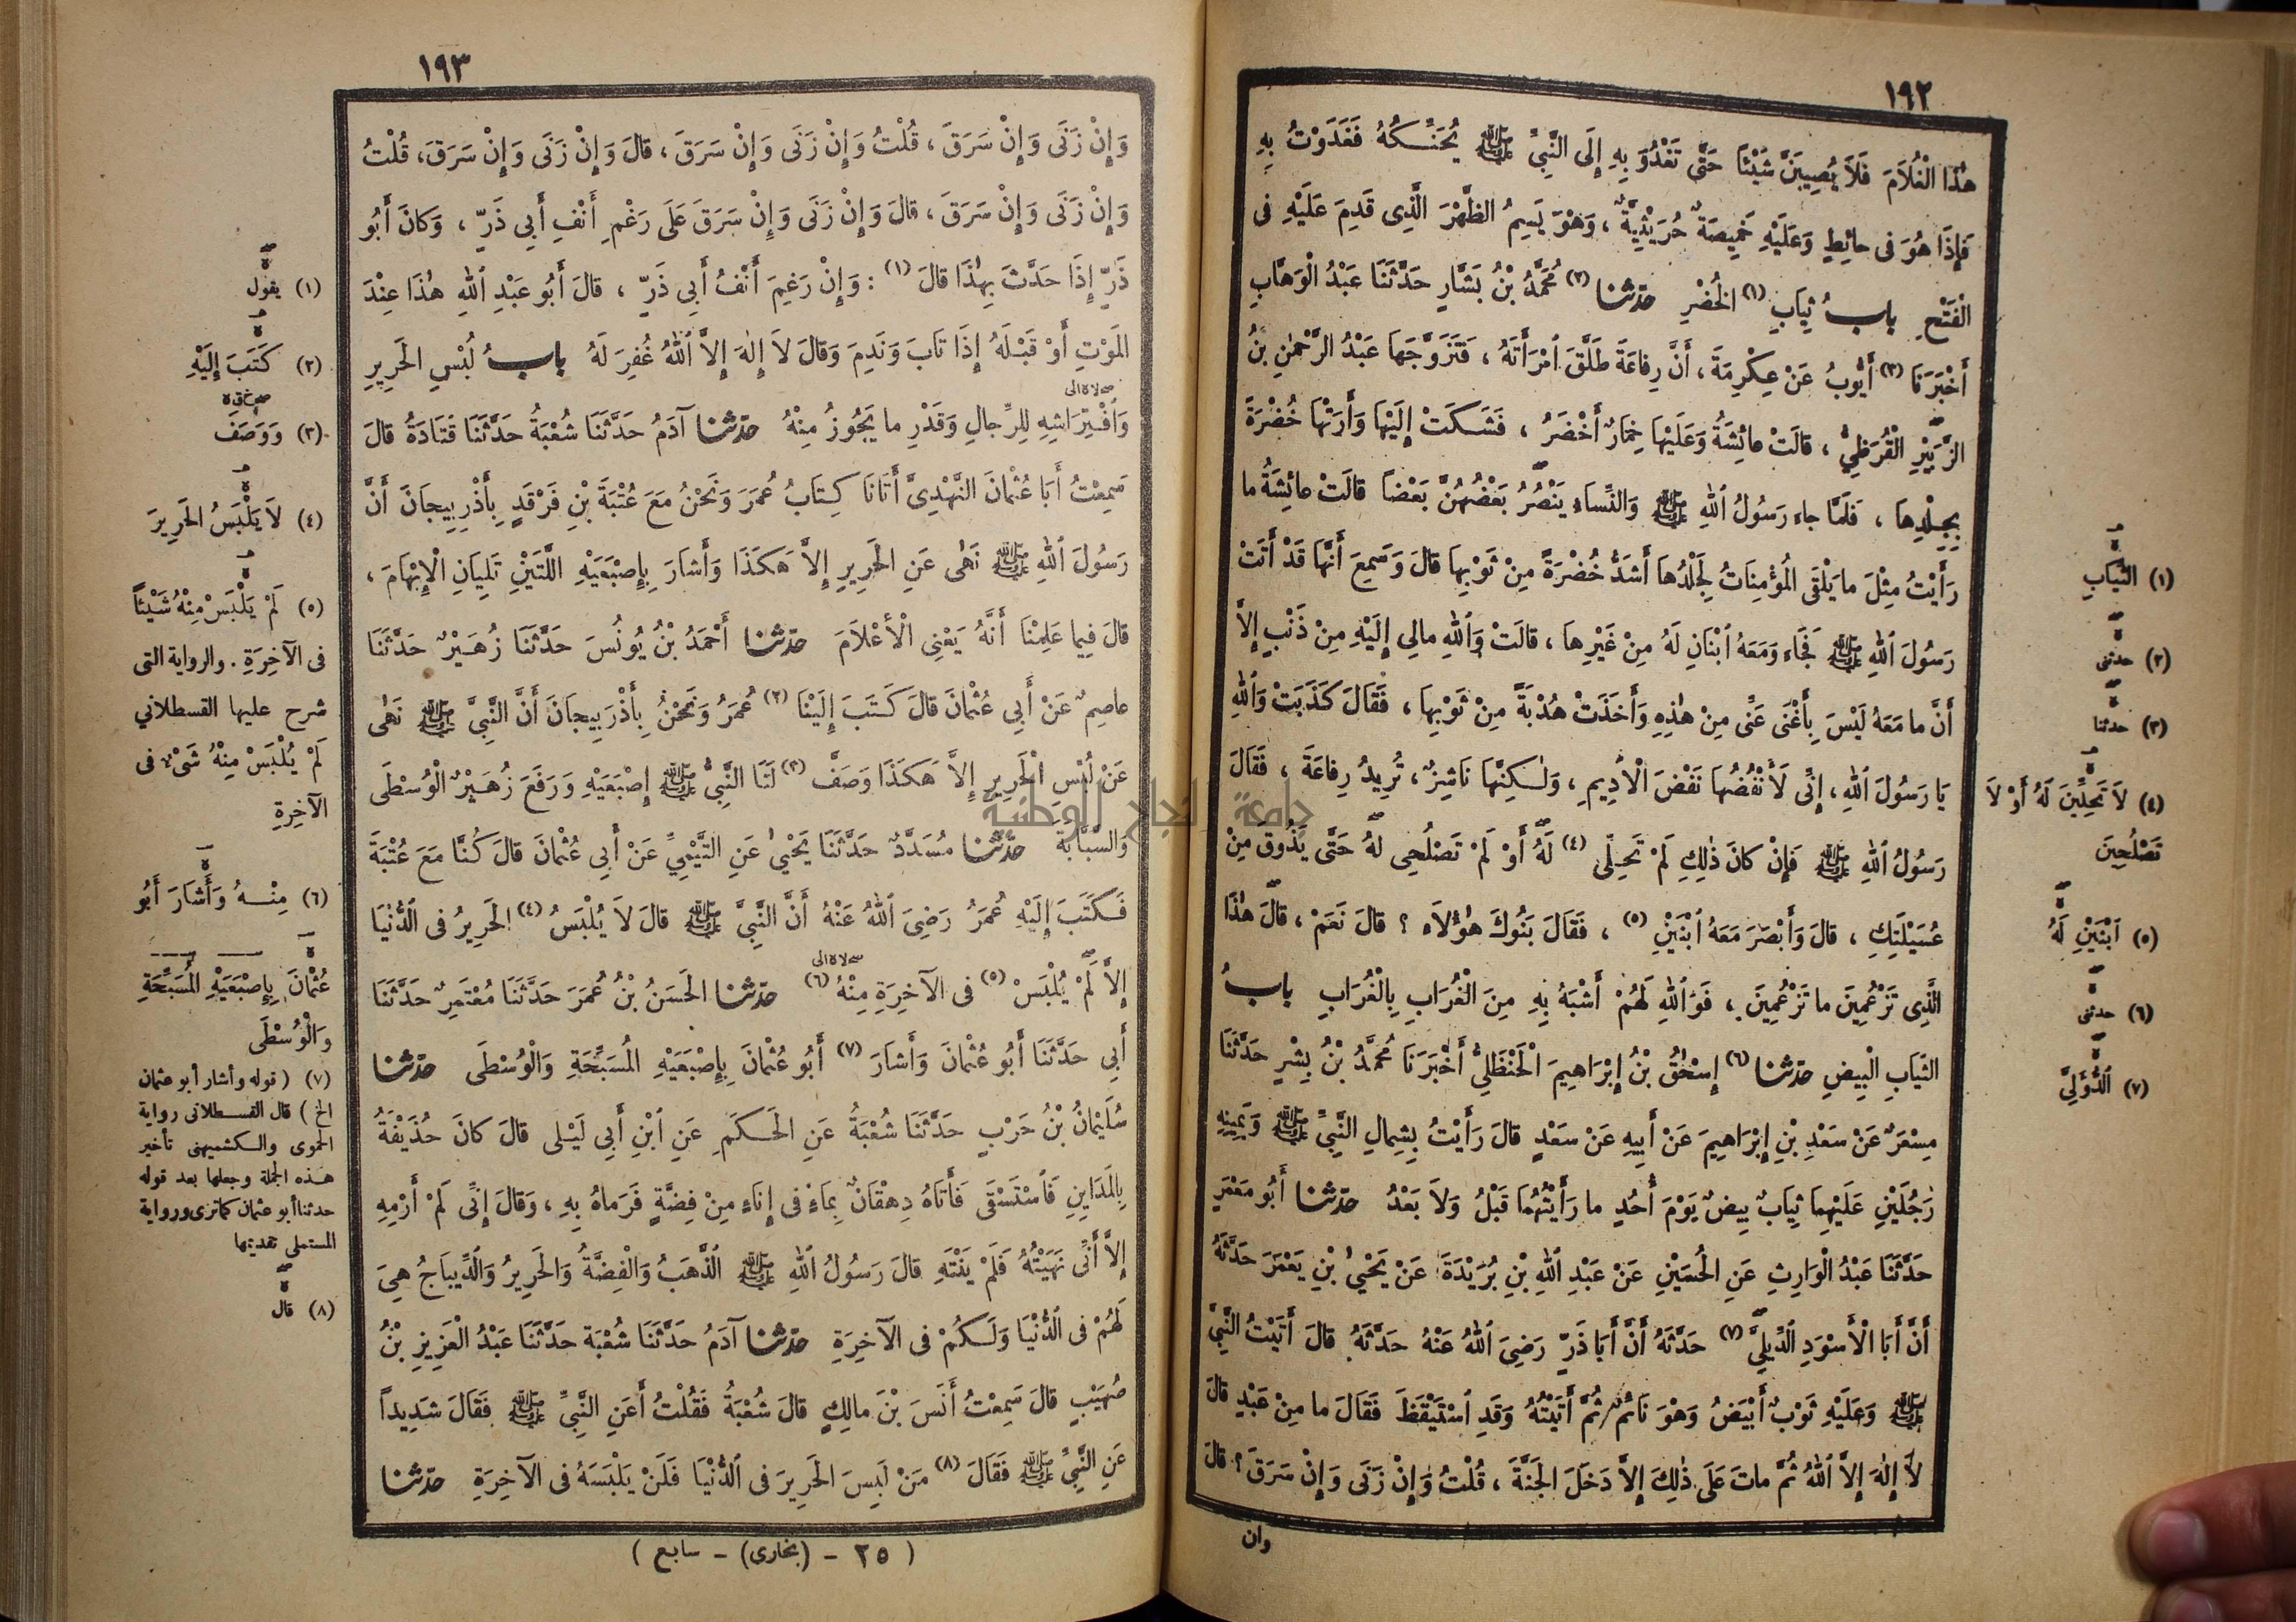 ١٩٢
هٰذَا الْغُلَامَ فَلَا يُصِيبَنَّ شَيْئًا حَتَّى تَغْدُوَ بِهِ إِلَى النَّبِيِّ ﷺ يُحَنِّكُهُ فَغَدَوْتُ بِهِ
فَإِذَا هُوَ فى حائِطٍ وَعَلَيْهِ خَمِيصَةٌ حُرَيْثِيَّةٌ ، وَهْوَ يَسِمُ الظَّهْرَ الَّذِى قَدِمَ عَلَيْهِ فى
الْفَتْحِ بابُ ثِيَابِ (١) الْخُضْرِ حدّثنا (٢) مُحَمَّدُ بْنُ بَشَّارٍ حَدَّثَنَا عَبْدُ الْوَهَّابِ
أَخْبَرَنَا (٣) أَيُّوبُ عَنْ عِكْرِمَةَ ، أَنَّ رِفاعَةَ طَلَّقَ ٱمْرَأَتَهُ ، فَتَزَوَّجَهَا عَبْدُ الرَّحْمٰنِ بْنُ
الزَّبِيْرِ الْقُرَظِيُّ ، قالَتْ عائِشَةُ وَعَلَيْهَا خِمَارٌ أَخْضَرُ ، فَشَكَتْ إِلَيْهَا وَأَرَتْهَا خُضْرَةً
بِجِلْدِهَا ، فَلَمَّا جاءَ رَسُولُ ٱللّٰهِ ﷺ وَالنِّسَاءُ يَنْصُرُ بَعْضُهُنَّ بَعْضًا قالَتْ عائِشَةُ ما
رَأَيْتُ مِثْلَ ما يَلْقَى الْمُؤْمِنَاتُ لَجِلْدُهَا أَشَدُّ خُضْرَةً مِنْ ثَوْبِهَا قالَ وَسَمِعَ أَنَّهَا قَدْ أَتَتْ
رَسُولَ ٱللّٰهِ ﷺ فَجَاءَ وَمَعَهُ ٱبْنَانِ لَهُ مِنْ غَيْرِهَا ، قالَتْ وَٱللّٰهِ مالِى إِلَيْهِ مِنْ ذَنْبٍ إِلاَّ
أَنَّ ما مَعَهُ لَيْسَ بِأَغْنَى عَنِّى مِنْ هٰذِهِ وَأَخَذَتْ هُدْبَةً مِنْ ثَوْبِهَا ، فَقَالَ كَذَبَتْ وَٱللّٰهِ
يَا رَسُولَ ٱللّٰهِ ، إِنِّى لَأَنْفُضُهَا نَفْضَ الْأَدِيمِ ، وَلٰكِنَّهَا نَاشِزٌ ، تُرِيدُ رِفاعَةَ ، فَقَالَ
رَسُولُ ٱللّٰهِ ﷺ فَإِنْ كانَ ذٰلِكِ لَمْ تَحِلِّى (٤) لَهُ أَوْ لَمْ تَصْلُحِى لَهُ حَتَّى يَذُوقَ مِنْ
عُسَيْلَتِكِ ، قالَ وَأَبْصَرَ مَعَهُ ٱبْنَيْنِ (٥) ، فَقَالَ بَنُوكَ هٰؤُلَاءِ ؟ قالَ نَعَمْ ، قالَ هٰذَا
الَّذِى تَزْعُمِينَ ما تَزْعُمِينَ ، فَوَٱللّٰهِ لَهُمْ أَشْبَهُ بِهِ مِنَ الْغُرَابِ بِالْغُرَابِ بابُ
الثِّيَابِ الْبِيضِ حدّثنا (٦) إِسْحٰقُ بْنُ إِبْرَاهِيمَ الْحَنْظَلِيُّ أَخْبَرَنَا مُحَمَّدُ بْنُ بِشْرٍ حَدَّثَنَا
مِسْعَرٌ عَنْ سَعْدِ بْنِ إِبْرَاهِيمَ عَنْ أَبِيهِ عَنْ سَعْدٍ قالَ رَأَيْتُ بِشِمالِ النَّبِيِّ ﷺ وَيَمِينِهِ
رَجُلَيْنِ عَلَيْهِمَا ثِيَابٌ بِيضٌ يَوْمَ أُحُدٍ ما رَأَيْتُهُمَا قَبْلُ وَلَا بَعْدُ حدّثنا أَبُو مَعْمَرٍ
حَدَّثَنَا عَبْدُ الْوَارِثِ عَنِ الْحُسَيْنِ عَنْ عَبْدِ ٱللّٰهِ بْنِ بُرَيْدَةَ عَنْ يَحْيىٰ بْنِ يَعْمَرَ حَدَّثَهُ
أَنَّ أَبَا الْأَسْوَدِ الدِّيلِيَّ (٧) حَدَّثَهُ أَنَّ أَبَا ذَرٍّ رَضِىَ ٱللّٰهُ عَنْهُ حَدَّثَهُ قالَ أَتَيْتُ النَّبِيَّ
ﷺ وَعَلَيْهِ ثَوْبٌ أَبْيَضُ وَهْوَ نَائمٌ ثُمَّ أَتَيْتُهُ وَقَدِ ٱسْتَيْقَظَ فَقَالَ ما مِنْ عَبْدٍ قالَ
لَا إِلٰهَ إِلاَّ ٱللّٰهُ ثُمَّ ماتَ عَلَى ذٰلِكَ إِلاَّ دَخَلَ الْجَنَّةَ ، قُلْتُ وَإِنْ زَنَى وَإِنْ سَرَقَ ؟ قالَ
وان
(١) الثِّيَابِ
(٢) حدثنى
(٣) حدثنا
(٤) لَا تَحِلِّينَ لَهُ أَوْ لَا
تَصْلُحِينَ
(٥) ٱبْنَيْنِ لَهُ
(٦) حدثنى
(٧) ٱلدُّؤَلِيَّ
١٩٣
وَإِنْ زَنَى وَإِنْ سَرَقَ ، قُلْتُ وَإِنْ زَنَى وَإِنْ سَرَقَ ، قالَ وَإِنْ زَنَى وَإِنْ سَرَقَ ، قُلْتُ
وَإِنْ زَنَى وَإِنْ سَرَقَ ، قالَ وَإِنْ زَنَى وَإِنْ سَرَقَ عَلَى رَغْمِ أَنْفِ أَبِى ذَرٍّ ، وَكانَ أَبُو
ذَرٍّ إِذَا حَدَّثَ بِهٰذَا قالَ (١) : وَإِنْ رَغِمَ أَنْفُ أَبِى ذَرٍّ ، قالَ أَبُو عَبْدِ ٱللّٰهِ هٰذَا عِنْدَ
المَوْتِ أَوْ قَبْلَهُ إِذَا تَابَ وَنَدِمَ وَقالَ لَا إِلٰهَ إِلاَّ ٱللّٰهُ غُفِرَ لَهُ بابُ لُبْسِ الحَرِيرِ
وَٱفْتِرَاشِهِ لِلرِّجالِ وَقَدْرِ ما يَجُوزُ مِنْهُ حدّثنا آدَمُ حَدَّثَنَا شُعْبَةُ حَدَّثَنَا قَتَادَةُ قالَ
سَمِعْتُ أَبَا عُثْمَانَ النَّهْدِيَّ أَتَانَا كِتَابُ عُمَرَ وَنَحْنُ مَعَ عُتْبَةَ بْنِ فَرْقَدٍ بِأَذْرِبِيجَانَ أَنَّ
رَسُولَ ٱللّٰهِ ﷺ نَهٰى عَنِ الحَرِيرِ إِلاَّ هَكَذَا وَأَشَارَ بِإِصْبَعَيْهِ اللَّتَيْنِ تَلِيَانِ الْإِبْهَامَ ،
قالَ فِيما عَلِمْنَا أَنَّهُ يَعْنِى الْأَعْلَامَ حدّثنا أَحْمَدُ بْنُ يُونُسَ حَدَّثَنَا زُهَيْرٌ حَدَّثَنَا
عاصِمٌ عَنْ أَبِى عُثْمَانَ قالَ كَتَبَ إِلَيْنَا (٢) عُمَرُ وَنَحْنُ بِأَذْرَبِيجانَ أَنَّ النَّبِيَّ ﷺ نَهٰى
عَنْ لُبْسِ الْحَرِيرِ إِلاَّ هَكَذَا وَصَفَّ (٣) لَنَا النَّبِيُّ ﷺ إِصْبَعَيْهِ وَرَفَعَ زُهَيْرٌ الْوُسْطَى
وَالسَّبَّابَةَ حدّثنا مُسَدَّدٌ حَدَّثَنَا يَحْيىٰ عَنِ التَّيْمِيِّ عَنْ أَبِى عُثْمَانَ قالَ كُنَّا مَعَ عُتْبَةَ
فَكَتَبَ إِلَيْهِ عُمَرُ رَضِىَ ٱللّٰهُ عَنْهُ أَنَّ النَّبِيَّ ﷺ قالَ لَا يُلْبَسُ (٤) الحَرِيرُ فى الدُّنْيَا
إِلاَّ لَمْ يُلْبَسْ (٥) فى الآخِرَةِ مِنْهُ (٦) حدّثنا الحَسَنُ بْنُ عُمَرَ حَدَّثَنَا مُعْتَمِرٌ حَدَّثَنَا
أَبِى حَدَّثَنَا أَبُو عُثْمَانَ وَأَشَارَ (٧) أَبُو عُثْمَانَ بِإِصْبَعَيْهِ المُسَبِّحَةِ وَالْوُسْطَى حدّثنا
سُلَيْمَانُ بْنُ حَرْبٍ حَدَّثَنَا شُعْبَةُ عَنِ الحَكَمِ عَنِ ٱبْنِ أَبِى لَيْلَى قالَ كانَ حُذَيْفَةُ
بِالمَدَايِنِ فَٱسْتَسْقَى فَأَتَاهُ دِهْقَانٌ بِمَاءٍ فى إِنَاءٍ مِنْ فِضَّةٍ فَرَمَاهُ بِهِ ، وَقالَ إِنِّى لَمْ أَرْمِهِ
إِلاَّ أَنِّى نَهَيْتُهُ فَلَمْ يَنْتَهِ قالَ رَسُولُ ٱللّٰهِ ﷺ الذَّهَبُ وَالْفِضَّةُ وَالحَرِيرُ وَالدِّيبَاجُ هِىَ
لَهُمْ فى الدُّنْيَا وَلَكُمْ فى الآخِرَةِ حدّثنا آدَمُ حَدَّثَنَا شُعْبَة حَدَّثَنَا عَبْدُ الْعَزِيزِ بْنُ
صُهَيْبٍ قالَ سَمِعْتُ أَنَسَ بْنَ مالِكٍ قالَ شُعْبَةُ فَقُلْتُ أَعَنِ النَّبِيِّ ﷺ فَقَالَ شَدِيداً
عَنِ النَّبِيِّ ﷺ فَقَالَ (٨) مَنْ لَبِسَ الحَرِيرَ فى الدُّنْيَا فَلَنْ يَلْبَسَهُ فى الآخِرَةِ حدّثنا
( ٢٥ - (بخارى) - سابع )
(١) يقول
(٢) كَتَبَ إِلَيْهِ
(٣) وَوَصَفَ
(٤) لَا يَلْبَسُ الحَرِيرَ
(٥) لَمْ يَلْبَسْ مِنْهُ شَيْئًا
فى الآخِرَةِ . والرواية التى
شرح عليها القسطلاني
لَمْ يُلْبَسْ مِنْهُ شَىْءٌ فى
الآخِرَةِ
(٦) مِنْهُ وَأَشَارَ أَبُو
عُثْمَانَ بِإِصْبَعَيْهِ المُسَبِّحَةِ
وَالْوُسْطَى
(٧) ( قوله وأشار أبو عثمان
الخ ) قال القسطلانى رواية
الحموى والكشميهنى تأخير
هذه الجملة وجعلها بعد قوله
حدثنا أبو عثمان كما ترى ورواية
المستملى تقديمها
(٨) قال
جامعة النجاح الوطنية